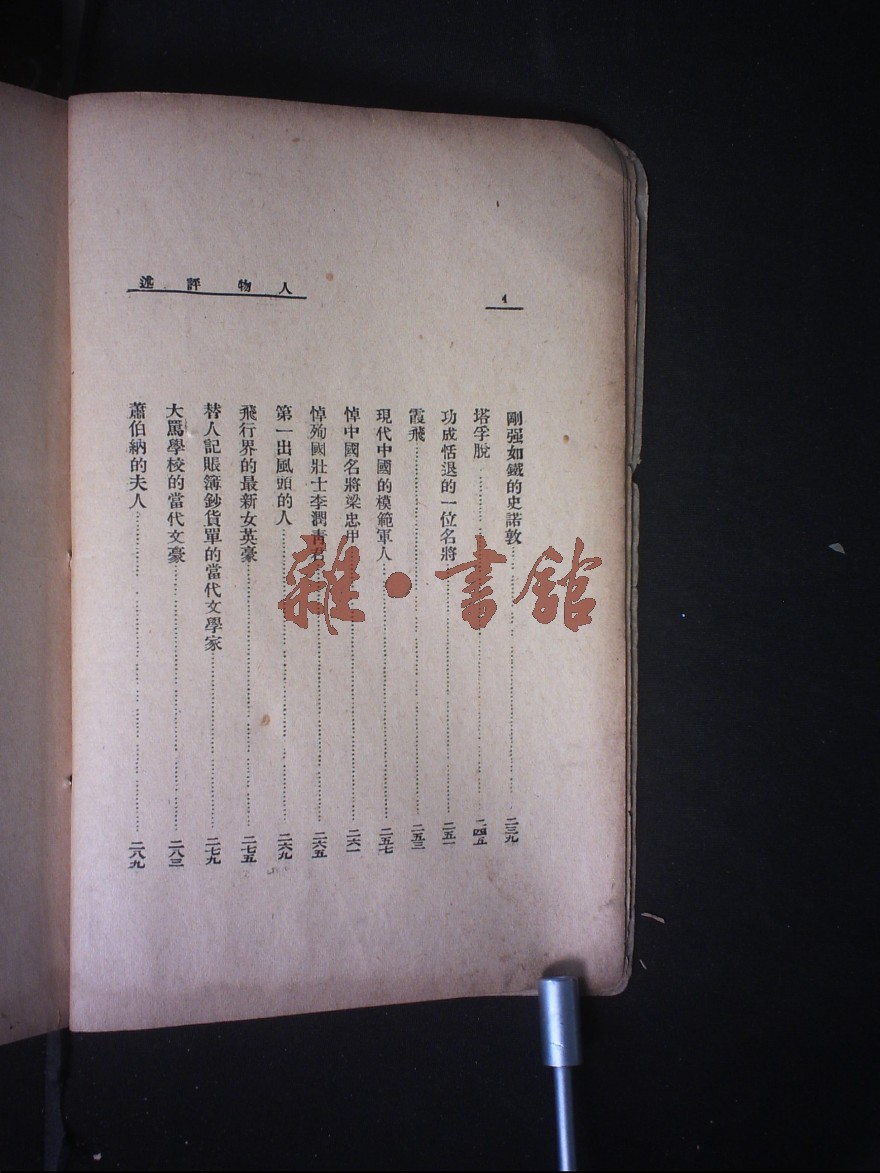 人物評述
4
剛强如鐵的史諾敦……二三九
塔孚脫……二四五
功成恬退的一位名將……二五一
霞飛……二五三
現代中國的模範軍人……二五七
悼中國名將梁忠甲……二六一
悼殉國壯士李潤青君……二六五
第一出風頭的人……二六九
飛行界的最新女英豪……二七五
替人記賬簿鈔貨單的當代文學家……二七九
大罵學校的當代文豪……二八三
蕭伯納的夫人……二八九
雜·書館